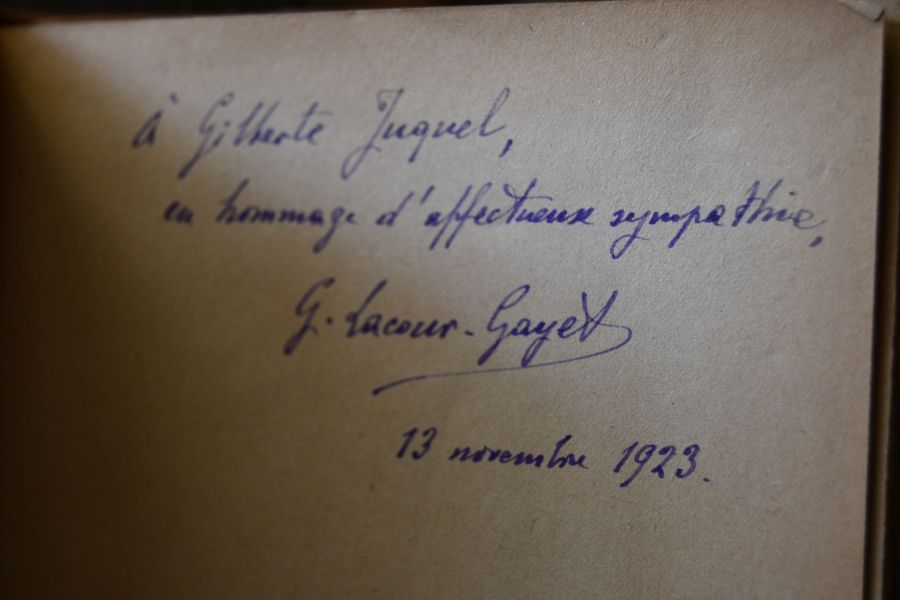 À Gilberte Juquel,
en hommage d'affectueux sympathie,
G. Lacour-Gayet
13 novembre 1923.